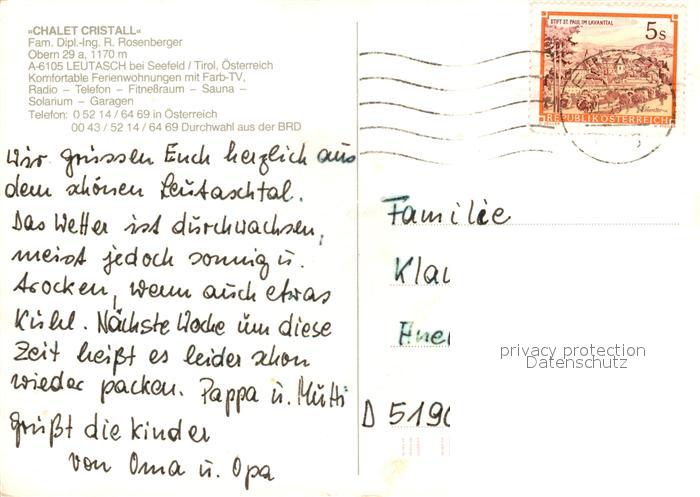 »CHALET CRISTALL«
Fam. Dipl.-Ing. R. Rosenberger
Obern 29 a, 1170 m
A-6105 LEUTASCH bei Seefeld / Tirol, Österreich
Komfortable Ferienwohnungen mit Farb-TV,
Radio – Telefon – Fitneßraum – Sauna –
Solarium – Garagen
Telefon: 0 52 14 / 64 69 in Österreich
00 43 / 52 14 / 64 69 Durchwahl aus der BRD
Wir grüssen Euch herzlich aus
dem schönen Leutaschtal.
Das Wetter ist durchwachsen,
meist jedoch sonnig u.
trocken, wenn auch etwas
kühl. Nächste Woche um diese
Zeit heißt es leider schon
wieder packen. Pappa u. Mutti
grüßt die Kinder
von Oma u. Opa
STIFT ST. PAUL IM LAVANTTAL
5 s
REPUBLIK ÖSTERREICH
Familie
Klau
D 5190
privacy protection
Datenschutz